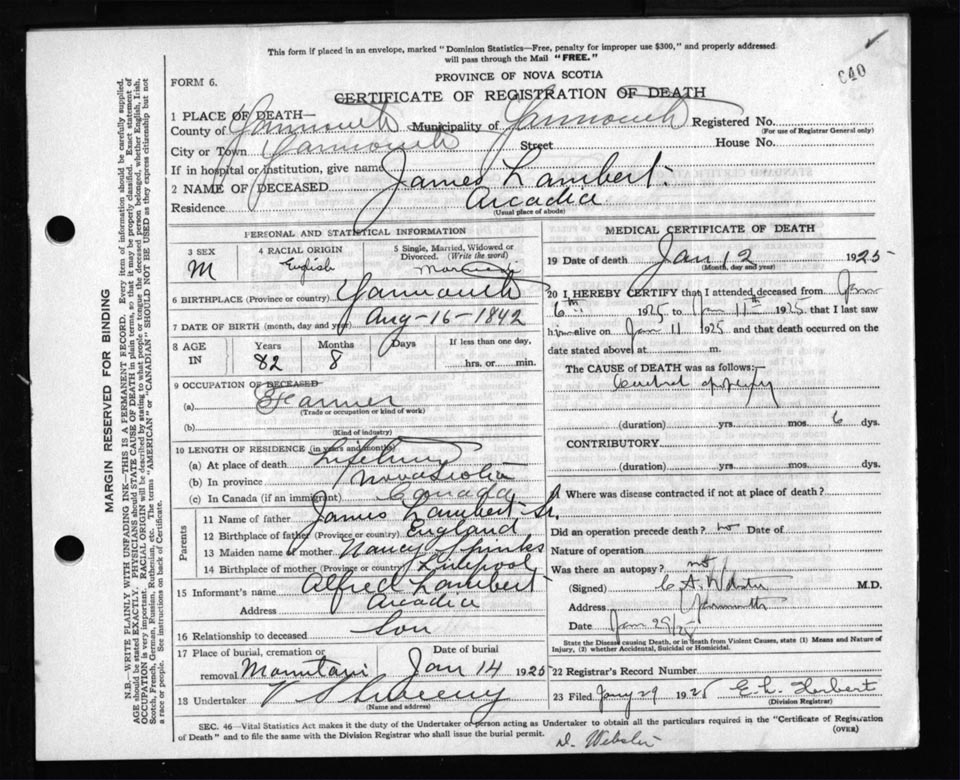 This form if placed in an envelope, marked "Dominion Statistics—Free, penalty for improper use $300," and properly addressed
will pass through the Mail "FREE."
C40
FORM 6.
PROVINCE OF NOVA SCOTIA
CERTIFICATE OF REGISTRATION OF DEATH
1 PLACE OF DEATH—
County of Yarmouth Municipality of Yarmouth Registered No.
(For use of Registrar General only)
City or Town Yarmouth Street House No.
If in hospital or institution, give name
2 NAME OF DECEASED James Lambert
Residence Arcadia
(Usual place of abode)
PERSONAL AND STATISTICAL INFORMATION
3 SEX 4 RACIAL ORIGIN 5 Single, Married, Widowed or
Divorced. (Write the word)
M English Married
6 BIRTHPLACE (Province or country) Yarmouth
7 DATE OF BIRTH (month, day and year) Aug-16-1842
8 AGE IN Years Months Days If less than one day,
82 8 hrs. or min.
9 OCCUPATION OF DECEASED
(a) Farmer
(Trade or occupation or kind of work)
(b)
(Kind of industry)
10 LENGTH OF RESIDENCE (in years and months)
(a) At place of death Lifetime
(b) In province Nova Scotia
(c) In Canada (if an immigrant) Canada
Parents
11 Name of father James Lambert Sr.
12 Birthplace of father (Province or country) England
13 Maiden name of mother Nancy Jinks
14 Birthplace of mother (Province or country) Liverpool
15 Informant's name Alfred Lambert
Address Arcadia
16 Relationship to deceased Son
17 Place of burial, cremation or Date of burial
removal Mountain Jan 14 1925
18 Undertaker V S Sweeny
(Name and address)
MEDICAL CERTIFICATE OF DEATH
19 Date of death Jan 12 1925
(Month, day and year)
20 I HEREBY CERTIFY that I attended deceased from Jan
6th 1925 to Jan 11th 1925, that I last saw
him alive on Jan 11 1925 and that death occurred on
date stated above at m.
The CAUSE of DEATH was as follows:
Cerebral apoplexy
(duration) yrs. mos. 6 dys.
CONTRIBUTORY
(duration) yrs. mos. dys.
21 Where was disease contracted if not at place of death?
Did an operation precede death? no Date of
Nature of operation
Was there an autopsy? no
(Signed) C A Webster M.D.
Address Yarmouth
Date Jan 29/25
State the Disease causing Death, or in death from Violent Causes, state (1) Means and Nature of
Injury, (2) whether Accidental, Suicidal or Homicidal.
22 Registrar's Record Number
23 Filed Jany 29 1925 E. L. Herbert
(Division Registrar)
SEC. 46—Vital Statistics Act makes it the duty of the Undertaker or person acting as Undertaker to obtain all the particulars required in the "Certificate of Registration
of Death" and to file the same with the Division Registrar who shall issue the burial permit.
(OVER)
D. Webster
MARGIN RESERVED FOR BINDING
N.B.—WRITE PLAINLY WITH UNFADING INK—THIS IS A PERMANENT RECORD. Every item of information should be carefully supplied.
AGE should be stated EXACTLY. PHYSICIANS should STATE CAUSE OF DEATH in plain terms, so that it may be properly classified. Exact statement of
OCCUPATION is very important. RACIAL ORIGIN will be described by stating to what people or tongue the deceased person belonged, whether English, Irish,
Scotch, French, German, Russian, Ruthenian, etc. The terms "AMERICAN" or "CANADIAN" SHOULD NOT BE USED as they express citizenship but not
a race or people. See instructions on back of Certificate.